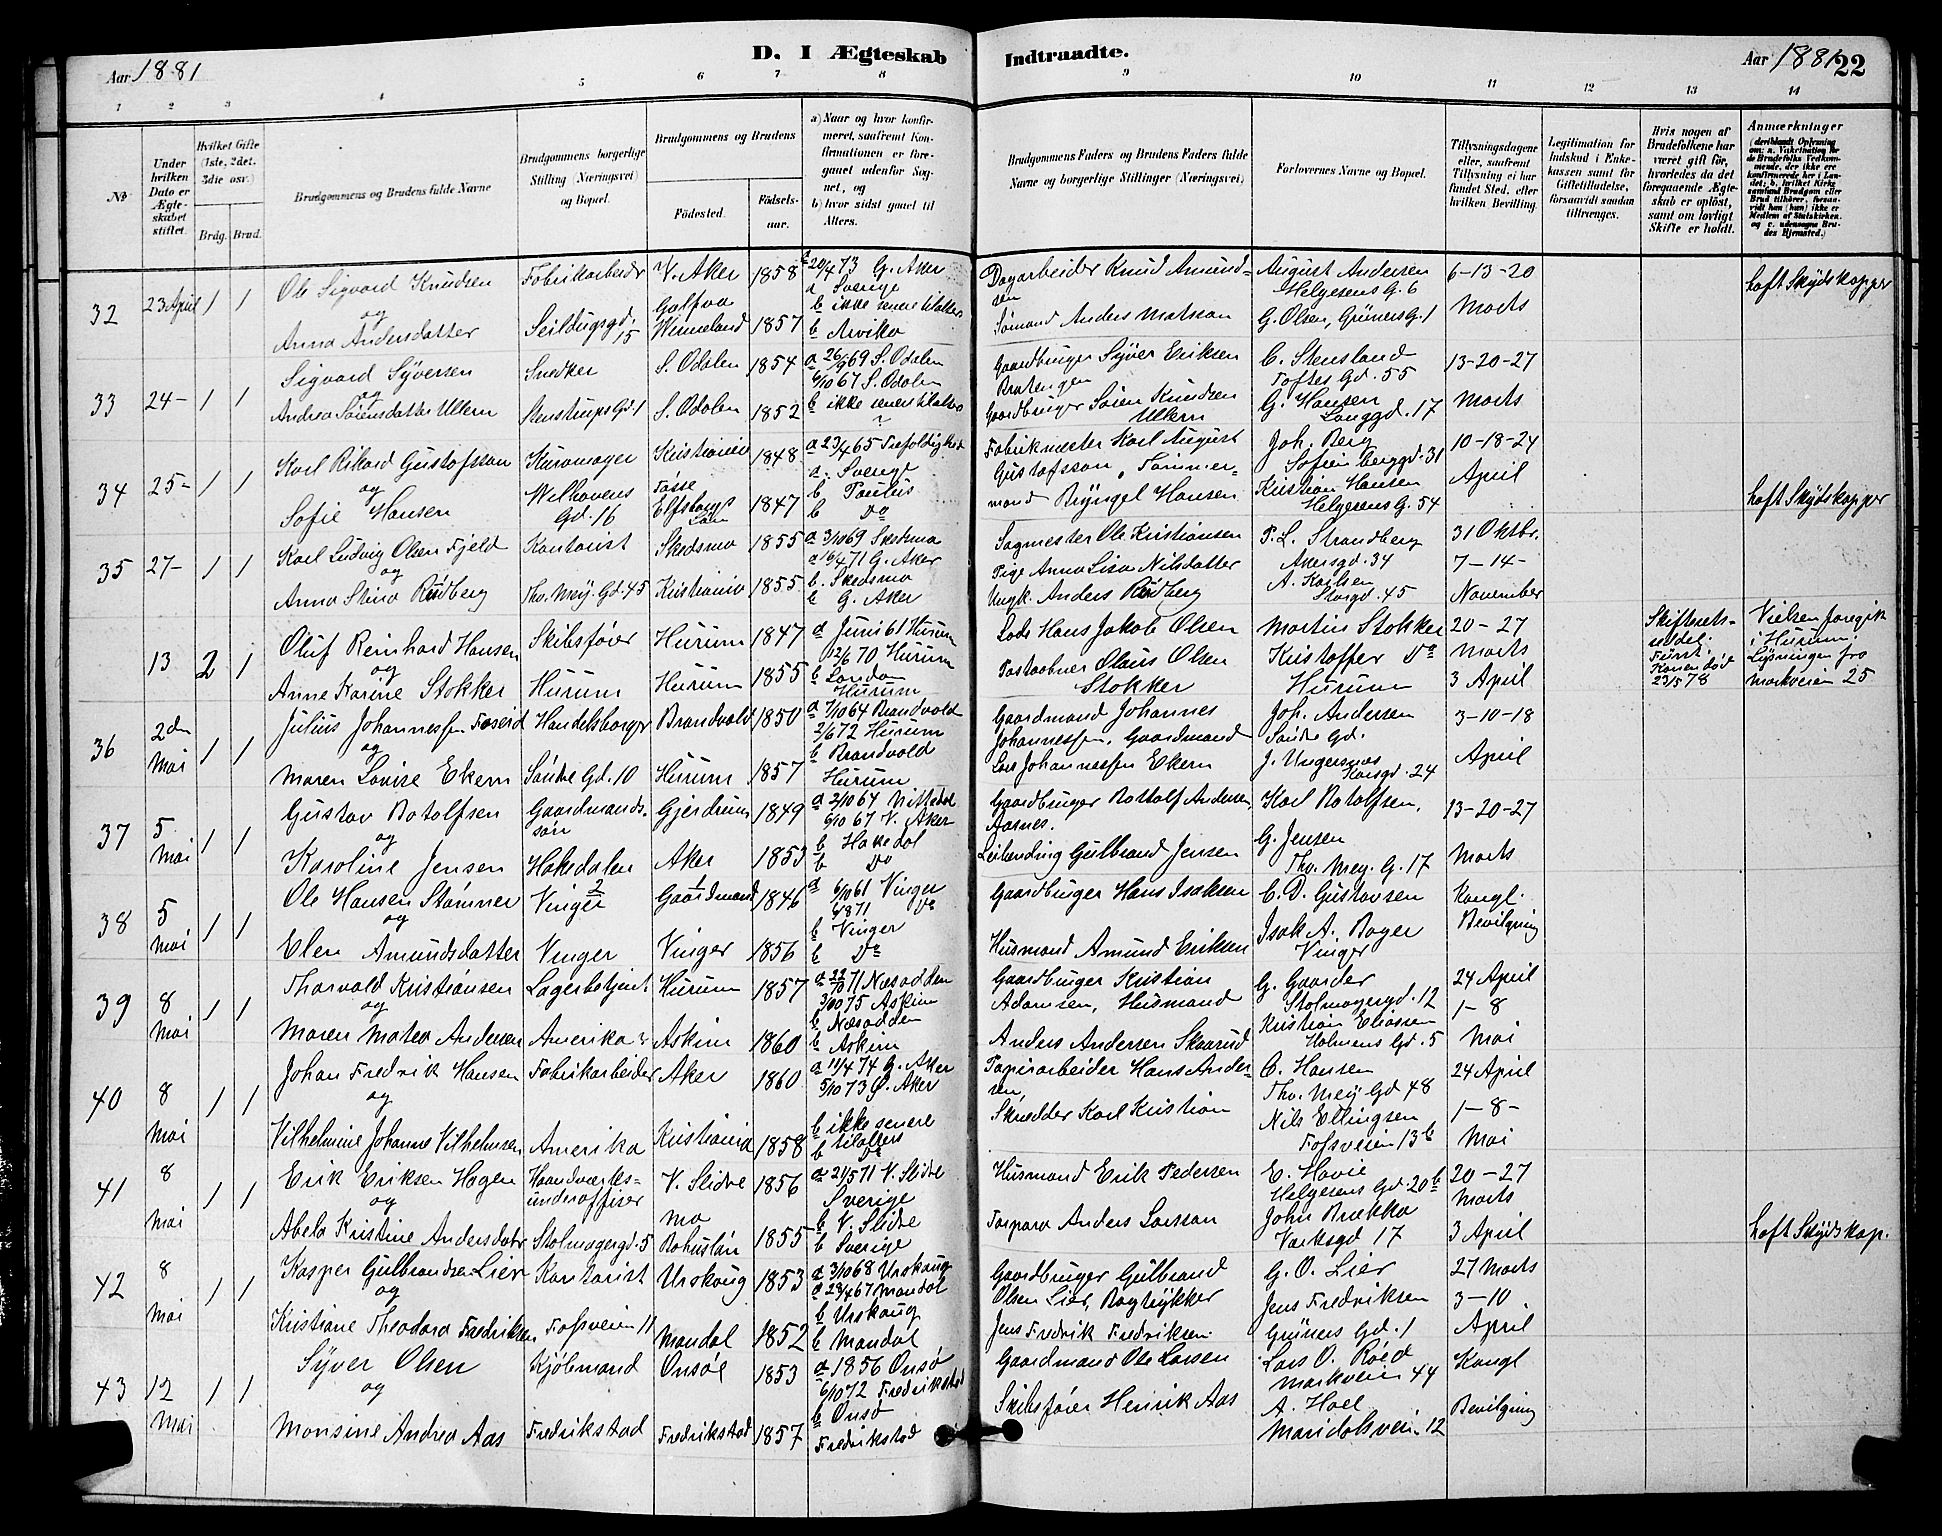 Aar 1881
D. I Ægteskab Indtraadte.
Aar 1881 22
1 2 3 4 5 6 7 8 9 10 11 12 13 14
No
Under hvilken Dato er Ægteskabet stiftet.
Hvilket Gifte (1ste, 2det, 3die osv.)
Brdg. Brud.
Brudgommens og Brudens fulde Navne
Brudgommens borgerlige Stilling (Næringsvei) og Bopæl.
Brudgommens og Brudens
Fødested.
Fødselsaar.
a) Naar og hvor konfirmeret, saafremt Konfirmationen er foregaaet udenfor Sognet, og
b) hvor sidst gaaet til Alters.
Brudgommens Faders og Brudens Faders fulde Navne og borgerlige Stillinger (Næringsvei)
Forlovernes Navne og Bopæl.
Tillysningsdagene eller, saafremt Tillysning ei har fundet Sted, efter hvilken Bevilling.
Legitimation for Indskud i Enkekassen samt for Giftetilladelse, forsaavidt saadan tiltrænges.
Hvis nogen af Brudefolkene har været gift før, hvorledes da det foregaaende Ægteskab er opløst, samt om lovligt Skifte er holdt.
Anmærkninger (deriblandt Oplysning om: a. Vakcination for de Brudefolks Vedkommende, der ikke ere konfirmerede her i Landet; b. hvilket Kirkesamfund Brudgom eller Brud tilhører, forsaavidt han (hun) ikke er Medlem af Statskirken, og c. udensogns Brudes Hjemsted.)
32 23 April 1 1
Ole Sigvard Knudsen
og
Anna Andersdatter
Fabrikarbeider
Seildugsgd. 15
V. Aker 1858
Wermeland 1857
a 20/4 73 G. Aker
a Sverige
b ikke senere tilalters
b Arvika
Dagarbeider Knud Amundsen
Sømand Anders Matsson
August Andersen
Helgesens G. 6
G. Olsen, Grüners G. 1
6-13-20
Marts
haft Skydskopper
33 24- 1 1
Sigvard Syversen
og
Andrea Sørensdatter Ullern
Snedker
Stenstrups Gd. 1
S. Odalen 1854
S. Odalen 1852
a 26/9 69 S. Odalen
6/10 67 S. Odalen
b ikke senere tilalters
Gaardbruger Syver Eriksen
Bratengen
Gaardbruger Søren Knudsen
Ullern
C. Stensland
Toftes Gd. 55
G. Hansen
Langgd. 17
13-20-27
Marts
34 25- 1 1
Karl Rikard Gustafsson
og
Sofie Hansen
Kuromager
Welhavens Gd. 16
Kristiania 1848
Elfsborgs Län 1847
a 23/4 65 Trefoldighed
a. Sverige
b Paulus
b Do
Fabrikmester Karl August
Gustafsson, Tømmermand
Bryngel Hansen
Joh. Berg
Sofienberggd. 31
Kristian Hansen
Helgesens G. 54
10-18-24
April
haft Skydskopper
35 27- 1 1
Karl Ludvig Olsen Fjeld
og
Anna Stina Rødberg
Kontorist
Thv. Mey. Gd. 45
Skedsmo 1855
Kristiania 1855
a 3/10 69 Skedsmo
a 16/4 71 G. Aker
b. Skedsmo
b G. Aker
Sagmester Ole Kristiansen
Pige Anna Lisa Nilsdatter
Ungk. Anders Rødberg
P. L. Strandberg
Akersgd. 34
A. Karlsen
Storgd. 45
31 Oktbr.
7-14-
November
13 2 1
Oluf Reinhard Hansen
og
Anne Karine Stokker
Skibsfører
Hurum
Hurum 1847
Hurum 1855
a Juni 61 Hurum
12/6 70 Hurum
b London
Hurum
Lods Hans Jakob Olsen
Postaabner Olaus Olsen
Stokker
Martin Stokker
Kristoffer Do
Hurum
20-27
Marts
3 April
Skifteretsseddel.
Først:
Konen død
23/5 78
Vielsen foregik
i Hurum.
Lysningen fra
Markveien 25
36 2den Mai 1 1
Julius Johannessen Foseid
og
Maren Lovise Ekern
Handelsborger
Søndre Gd. 10
Brandvold 1850
Hurum 1857
a 7/10 64 Brandvold
2/6 72 Hurum
b Brandvold
Hurum
Gaardmand Johannes
Johannessen, Gaardmand
Lars Johannessen Ekern
Joh. Andersen
Søndre Gd.
J. Ungersnes
Torvgd. 24
3-10-18
April
37 5 Mai 1 1
Gustav Botolfsen
og
Karoline Jensen
Gaardmandssøn
Hakedalen
Gjerdrum 1849
Aker 1853
a 2/10 64 Nittedal
6/10 67 V. Aker
b Hakedal
b Do
Gaardbruger Bottolf Andersen
Aasnes.
Leilending Gulbrand Jensen
Karl Botolfsen,
G. Jensen
Thv. Mey. G. 17
13-20-27
Marts
38 5 Mai 1 1
Ole Hansen Stømner
og
Elen Amundsdatter
Vinger
Vinger
Gaardmand 1846
Vinger 1856
a 6/10 61 Vinger
4 8 71 Do
b Vinger
b Do
Gaardbruger Hans Isaksen
Husmand Amund Eriksen
C. D. Gustavsen
Isak A. Bager
Vinger
Kongl.
Bevilgning
39 8 Mai 1 1
Thorvald Kristiansen
og
Maren Matea Andersen
Lagerbetjent
Amerika
Hurum 1857
Askim 1860
a 22/10 71 Næsodden
3/10 75 Askim
b Næsodden
b Askim
Gaardbruger Kristian
Adamsen, Husmand
Anders Andersen Skaarud
G. Gaarder
Stolmagergd. 12
Kristian Eliassen
Holmens Gd. 5
24 April
1-8
Mai
40 8 Mai 1 1
Johan Fredrik Hansen
og
Vilhelmine Johanne Vilhelmsen
Fabrikarbeider
Amerika
Aker 1860
Kristiania 1858
a 11/4 74 G. Aker
5/10 73 Ø. Aker
b ikke senere
b tilalters
Do
Papirarbeider Hans Andersen,
Skrædder Karl Kristian
O. Hansen
Thv. Mey Gd 48
Nils Ellingsen
Fossveien 13b
24 April
1-8-
Mai
41 8 Mai 1 1
Erik Eriksen Hagen
og
Abela Kristine Andersdatr
Haandverksunderofficer
Stolmagergd. 5
V. Slidre 1856
Mo
Bohuslän 1855
a 21/5 71 V. Slidre
Sverige
b V. Slidre
b Sverige
Husmand Erik Pedersen
Torpare Anders Larsson
E. Havie
Helgesens Gd. 20b
John Brække
Værksgd 17
20-27
Marts
3 April
haft Skydskop.
42 8 Mai 1 1
Kasper Gulbrandsen Lier
og
Kristiane Theodora Fredriksen
Kontorist
Fossveien 11
Urskoug 1853
Mandal 1852
a 3/10 68 Urskoug
a 28/4 67 Mandal
b Urskoug
b Mandal
Gaardbruger Gulbrand
Olsen Lier, Bogtrykker
Jens Fredrik Fredriksen.
G. O. Lier
Jens Fredriksen
Grüners Gd. 1
27 Marts
3-10
April
43 12 Mai 1 1
Syver Olsen
og
Monsine Andrea Aas
Kjøbmand
Fredrikstad
Onsøe 1853
Fredrikstad 1857
a 1856 Onsø
6/10 72 Fredrikstad
b Onsø
Fredrikstad
Gaardmand Ole Larsen
Skibsfører Henrik Aas
Lars O. Røed
Markveien 44
A. Hoel
Maridalsvei. 12
Kongl
Bevilgning